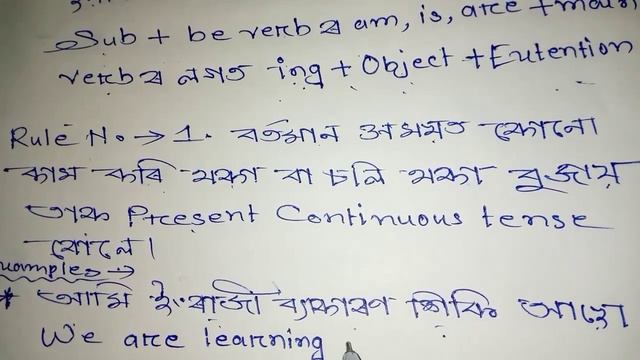 Sub + be verb ৰ am, is, are + main
verb ৰ লগত ing + Object + Extention
Rule No. → 1. বৰ্তমান সময়ত কোনো
কাম কৰি থকা বা চলি থকা বুজায়
তাক Present Continuous tense
বোলে।
Examples →
* আমি ইংৰাজী ব্যাকৰণ শিকি আছো
We are learning